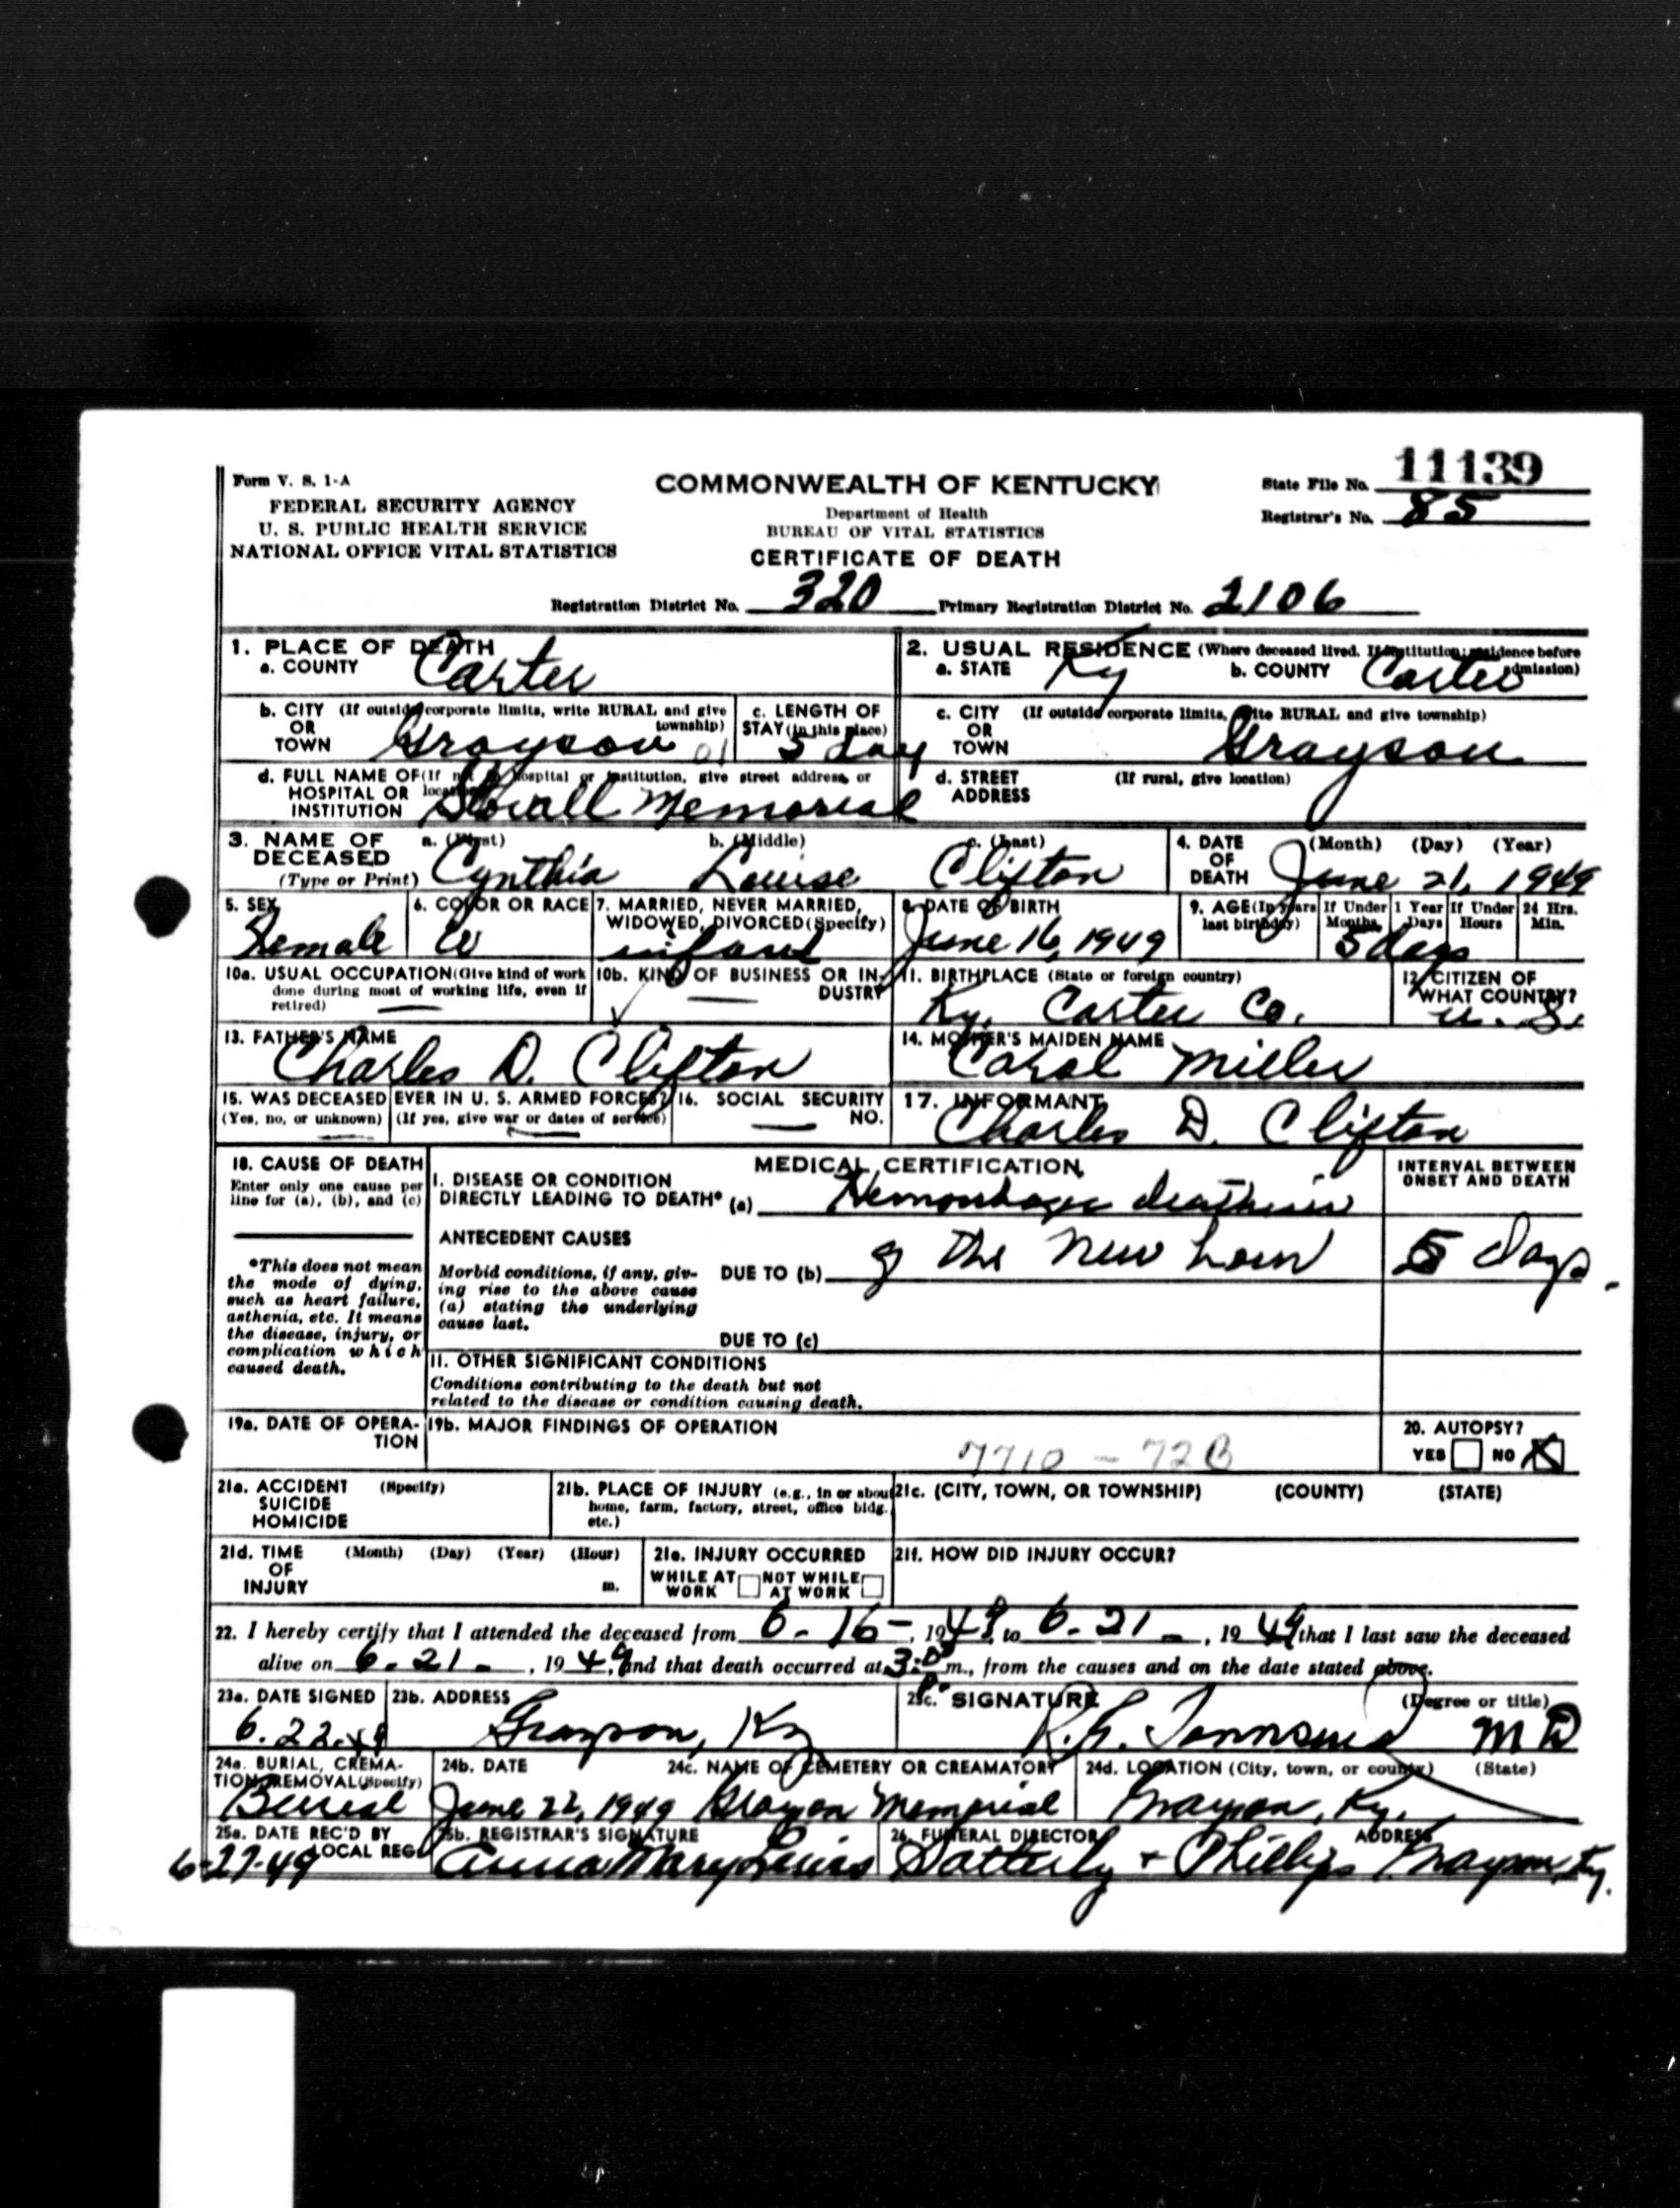 Form V. S. 1-A
FEDERAL SECURITY AGENCY
U. S. PUBLIC HEALTH SERVICE
NATIONAL OFFICE VITAL STATISTICS
COMMONWEALTH OF KENTUCKY
Department of Health
BUREAU OF VITAL STATISTICS
CERTIFICATE OF DEATH
State File No. 11139
Registrar's No. 85
Registration District No. 320 Primary Registration District No. 2106
1. PLACE OF DEATH
a. COUNTY Carter
2. USUAL RESIDENCE (Where deceased lived. If institution: residence before admission)
a. STATE Ky b. COUNTY Carter
b. CITY OR TOWN (If outside corporate limits, write RURAL and give township) Grayson 01
c. LENGTH OF STAY (in this place) 5 day
c. CITY OR TOWN (If outside corporate limits, write RURAL and give township) Grayson
d. FULL NAME OF HOSPITAL OR INSTITUTION (If not in hospital or institution, give street address or location) Stovall Memorial
d. STREET ADDRESS (If rural, give location)
3. NAME OF DECEASED (Type or Print) a. (First) Cynthia b. (Middle) Louise c. (Last) Clifton
4. DATE OF DEATH (Month) (Day) (Year) June 21, 1949
5. SEX Female
6. COLOR OR RACE W
7. MARRIED, NEVER MARRIED, WIDOWED, DIVORCED (Specify) infant
8. DATE OF BIRTH June 16, 1949
9. AGE (In years last birthday) If Under 1 Year Months Days If Under 24 Hrs. Hours Min. 5 days
10a. USUAL OCCUPATION (Give kind of work done during most of working life, even if retired) —
10b. KIND OF BUSINESS OR INDUSTRY —
11. BIRTHPLACE (State or foreign country) Ky. Carter Co.
12. CITIZEN OF WHAT COUNTRY? U. S.
13. FATHER'S NAME Charles D. Clifton
14. MOTHER'S MAIDEN NAME Carol Miller
15. WAS DECEASED EVER IN U. S. ARMED FORCES? (Yes, no, or unknown) — (If yes, give war or dates of service) —
16. SOCIAL SECURITY NO. —
17. INFORMANT Charles D. Clifton
18. CAUSE OF DEATH
Enter only one cause per line for (a), (b), and (c)
*This does not mean the mode of dying, such as heart failure, asthenia, etc. It means the disease, injury, or complication which caused death.
MEDICAL CERTIFICATION
INTERVAL BETWEEN ONSET AND DEATH
I. DISEASE OR CONDITION DIRECTLY LEADING TO DEATH* (a) Hemorrhagic
ANTECEDENT CAUSES
Morbid conditions, if any, giving rise to the above cause (a) stating the underlying cause last.
DUE TO (b) of the new born 5 days.
DUE TO (c)
II. OTHER SIGNIFICANT CONDITIONS
Conditions contributing to the death but not related to the disease or condition causing death.
19a. DATE OF OPERATION
19b. MAJOR FINDINGS OF OPERATION
7710 - 72B
20. AUTOPSY?
YES NO X
21a. ACCIDENT SUICIDE HOMICIDE (Specify)
21b. PLACE OF INJURY (e.g., in or about home, farm, factory, street, office bldg. etc.)
21c. (CITY, TOWN, OR TOWNSHIP) (COUNTY) (STATE)
21d. TIME OF INJURY (Month) (Day) (Year) (Hour) m.
21e. INJURY OCCURRED
WHILE AT WORK NOT WHILE AT WORK
21f. HOW DID INJURY OCCUR?
22. I hereby certify that I attended the deceased from 6-16-, 1949, to 6-21-, 1949 that I last saw the deceased
alive on 6-21-, 1949, and that death occurred at 3: P m., from the causes and on the date stated above.
23a. DATE SIGNED 6.22.49
23b. ADDRESS Grayson, Ky
23c. SIGNATURE (Degree or title) Townsend MD
24a. BURIAL, CREMATION, REMOVAL (Specify) Burial
24b. DATE June 22, 1949
24c. NAME OF CEMETERY OR CREAMATORY Grayson Memorial
24d. LOCATION (City, town, or county) (State) Grayson, Ky.
25a. DATE REC'D BY LOCAL REG. 6-27-49
25b. REGISTRAR'S SIGNATURE Anna Mary Lewis
26. FUNERAL DIRECTOR ADDRESS Satterly + Phillips Grayson, Ky.